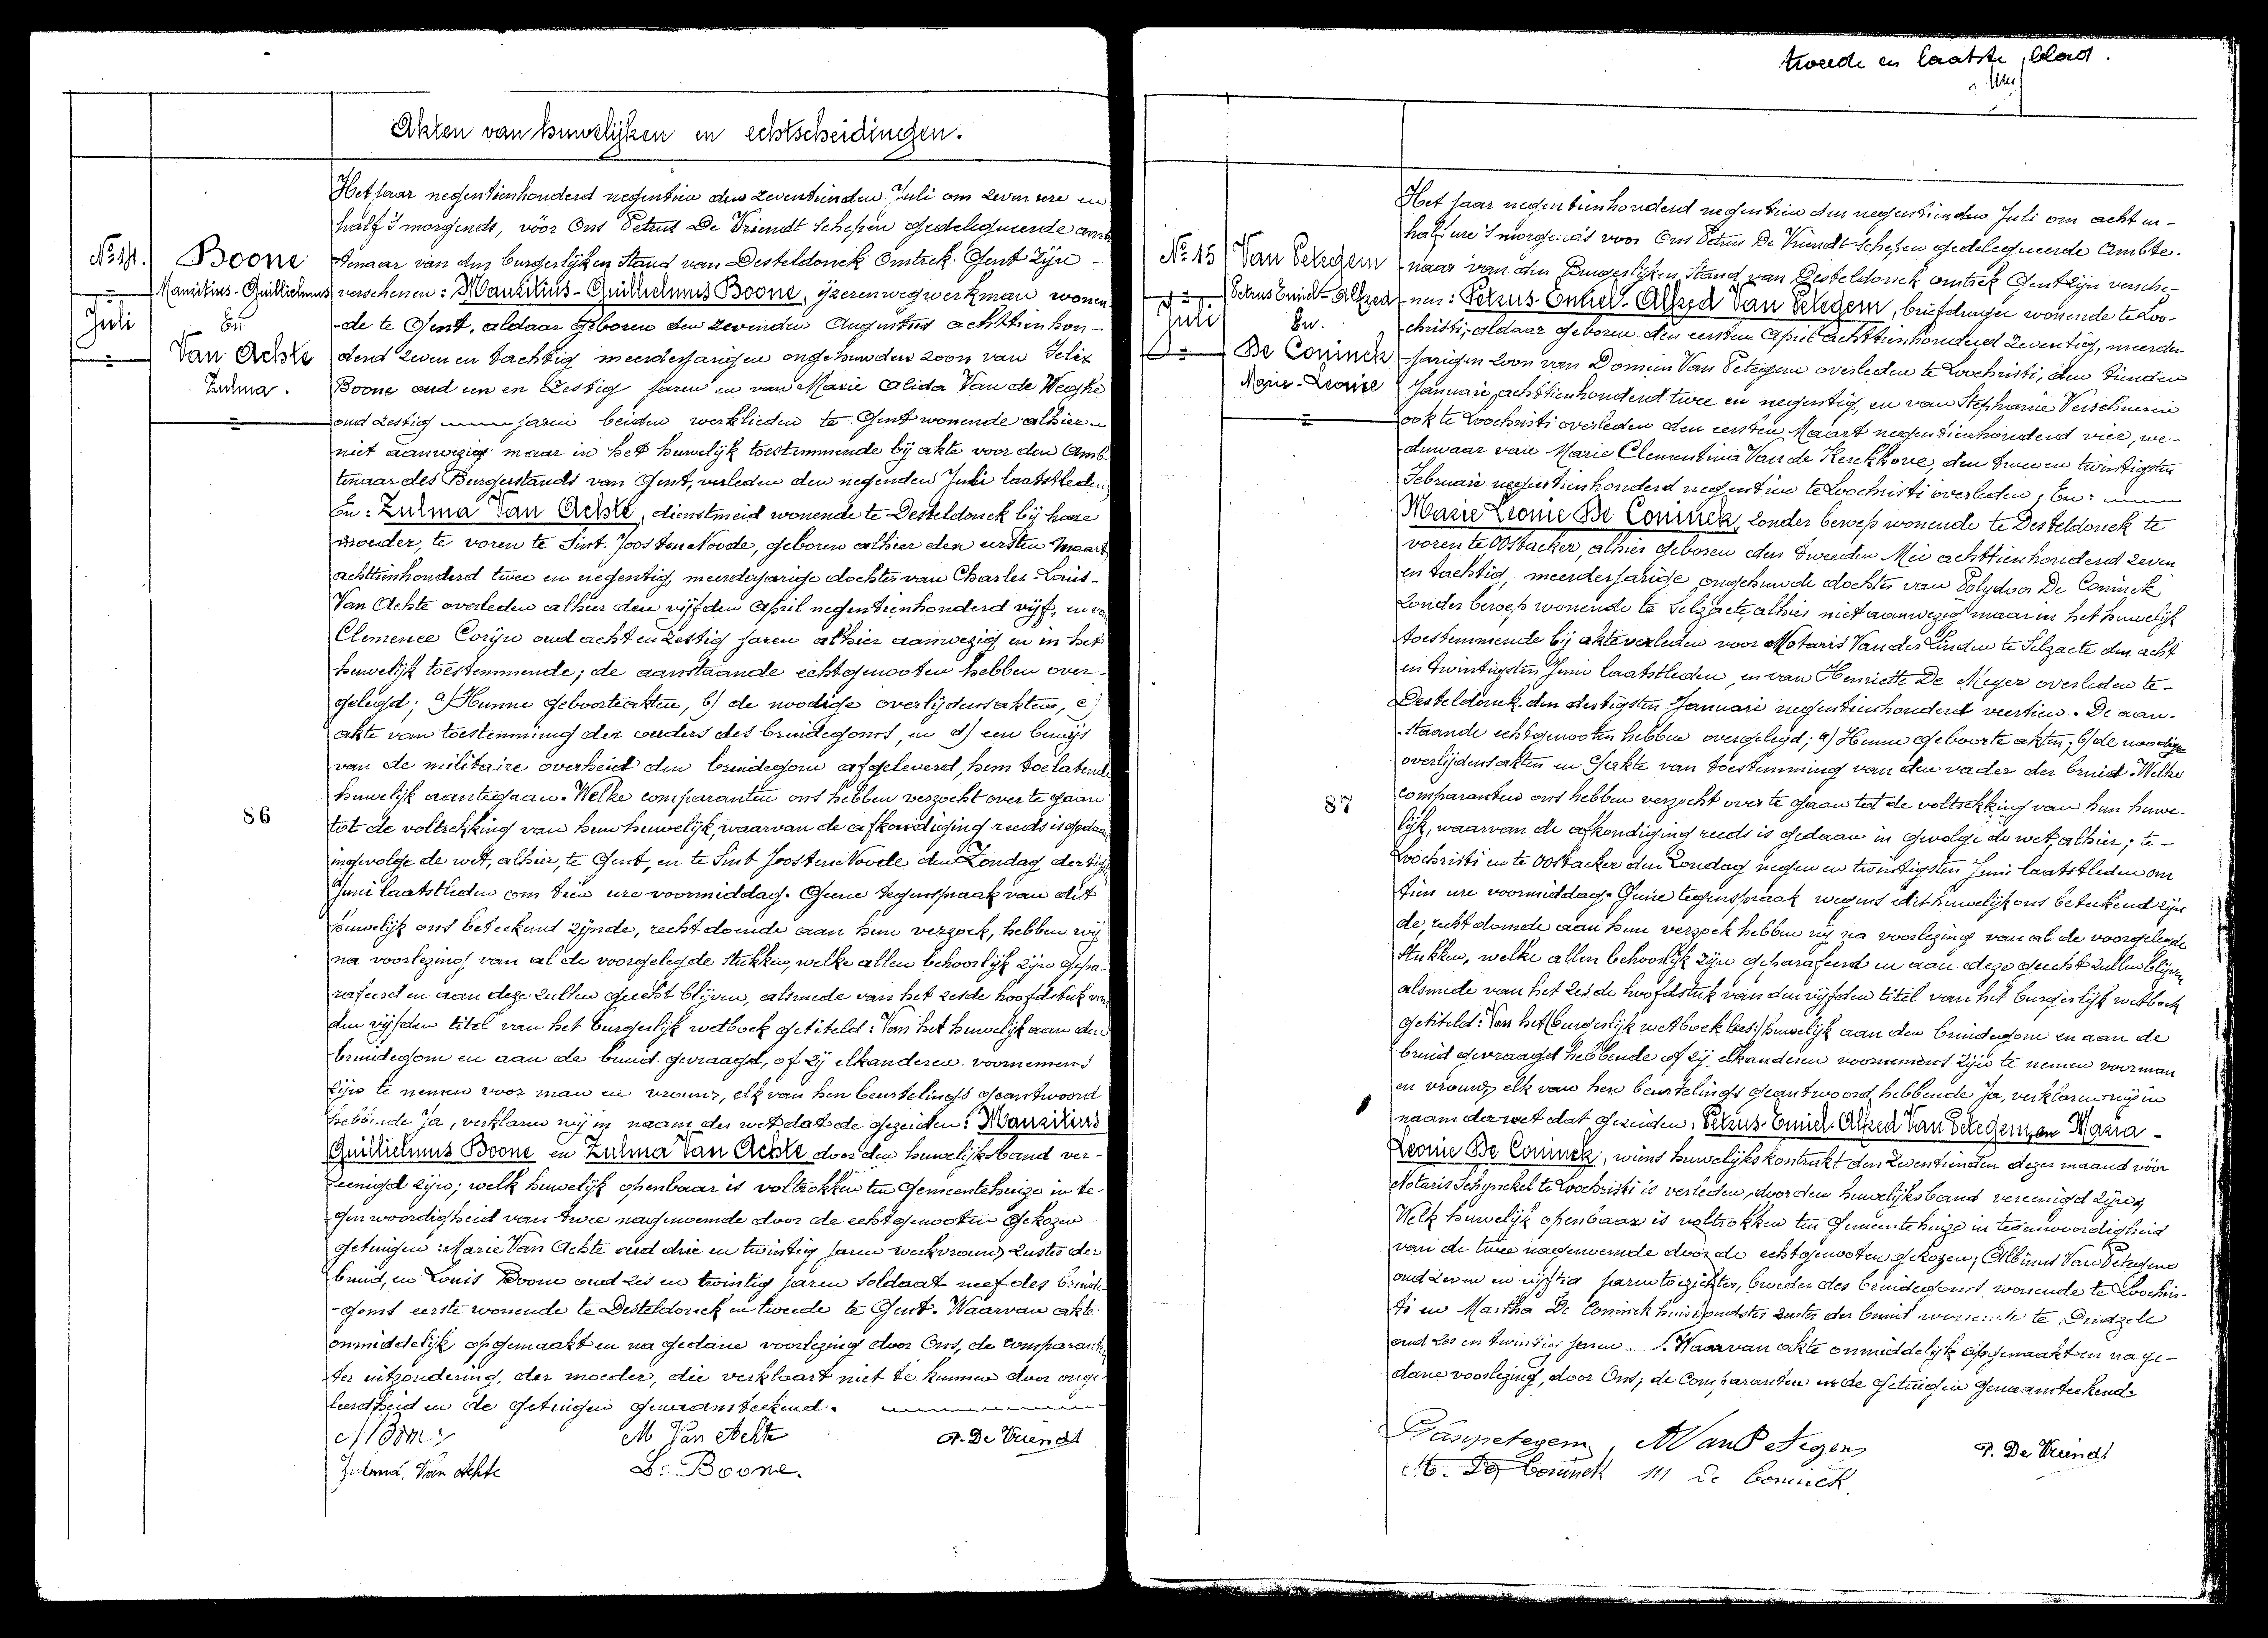 Akten van huwelijken en echtscheidingen.
Nº 14.
Juli
Boone
Mauritius-Guillielmus
En
Van Achte
Zulma.
86
Het jaar negentienhonderd negentien den zeventienden Juli om zeven ure en
half 's morgends, vóór Ons Petrus De Vriendt Schepen gedelegueerde amb
tenaar van den burgerlijken Stand van Desteldonck Omtrek Gent Zijn
verschenen: Mauritius-Guillielmus Boone, ijzerenwegwerkman wonen
-de te Gent, aldaar geboren den zevenden Augustus achttienhon-
derd zeven en tachtig meerderjarigen ongehuwden zoon van Felix
Boone oud een en zestig jaren en van Marie Alida Van de Weghe
oud zestig jaren beiden werklieden te Gent wonende alhier
niet aanwezig maar in het huwelijk toestemmende bij akte voor den Amb
tenaar des Burgerstands van Gent, verleden den negenden Juli laatstleden
En: Zulma Van Achte, dienstmeid wonende te Desteldonck bij hare
moeder, te voren te Sint. Joosten Noode, geboren alhier den eersten Maart
achttienhonderd twee en negentig, meerderjarige dochter van Charles-Louis-
Van Achte overleden alhier den vijfden April negentienhonderd vijf, en van
Clemence Corijn oud acht en zestig jaren alhier aanwezig en in het
huwelijk toestemmende; de aanstaande echtgenooten hebben over-
gelegd; a) Hunne geboorteakten, b) de noodige overlijdensakten, c)
akte van toestemming der ouders des bruidegoms, en d) een bewijs
van de militaire overheid den bruidegom afgeleverd, hem toelatende
huwelijk aantegaan. Welke comparanten ons hebben verzocht over te gaan
tot de voltrekking van hun huwelijk, waarvan de afkondiging reeds is gedaan
ingevolge de wet, alhier, te Gent, en te Sint Joosten Noode den Zondag dertigsten
Juni laatstleden om tien ure voormiddag. Geene tegenspraak van dit
huwelijk ons beteekend zijnde, recht doende aan hun verzoek, hebben wij
na voorlezing van al de voorgelegde stukken, welke allen behoorlijk zijn gepa-
rafeerd en aan deze zullen gehecht blijven, alsmede van het zesde hoofdstuk van
den vijfden titel van het burgerlijk wetboek getiteld: Van het huwelijk aan den
bruidegom en aan de bruid gevraagd, of zij elkanderen voornemens
zijn te nemen voor man en vrouw, elk van hen beurtelings geantwoord
hebbende Ja, verklaren wij in naam der wet dat de gezeiden: Mauritius
Guillielmus Boone en Zulma Van Achte door den huwelijksband ver-
eenigd zijn; welk huwelijk openbaar is voltrokken ten Gemeentehuize in te-
genwoordigheid van twee nagenoemde door de echtgenooten gekozen
getuigen: Marie Van Achte oud drie en twintig jaren werkvrouw zuster der
bruid, en Louis Boone oud zes en twintig jaren Soldaat neef des bruide
-goms eerste wonende te Desteldonck en tweede te Gent. Waarvan akte
onmiddelijk opgemaakt en na gedane voorlezing door Ons, de comparanten
ter uitzondering, der moeder, die verklaart niet te kunnen door onge-
leerdheid en de getuigen genaamteekend.
M Boone
M Van Achte
P. De Vriendt
Zulma Van Achte
L. Boone.
tweede en laatste blad.
Nº 15
Juli
Van Petegem
Petrus Emiel-Alfred
En.
De Coninck
Marie-Leonie
87
Het jaar negentienhonderd negentien den negentienden Juli om acht en-
half ure 's morgends voor Ons Petrus De Vriendt Schepen gedelegueerde Ambte-
naar van den Burgerlijken Stand van Desteldonck omtrek Gent zijn versche-
nen: Petrus-Emiel-Alfred Van Petegem, briefdrager wonende te Loo-
christi, aldaar geboren den eersten April achttienhonderd zeventig, meerder
-jarigen zoon van Domien Van Petegem overleden te Loochristi, den tienden
Januari achttienhonderd twee en negentig, en van Stephanie Verschueren
ook te Loochristi overleden den eersten Maart negentienhonderd vier, we-
duwaar van Marie Clementina Van de Kerckhove, den twee en twintigsten
Februari negentienhonderd negentien te Loochristi overleden; En:
Marie Leonie De Coninck, zonder beroep wonende te Desteldonck te
voren te Oostacker, alhier geboren den tweeden Mei achttienhonderd zeven
en tachtig, meerderjarige ongehuwde dochter van Polydoor De Coninck
zonder beroep wonende te Selzaete, alhier niet aanwezig maar in het huwelijk
toestemmende bij akte verleden voor Notaris Van der Linden te Selzaete den acht
en twintigsten Juni laatstleden, en van Henriette De Meyer overleden te-
Desteldonck den dertigsten Januari negentienhonderd veertien. De aan-
staande echtgenooten hebben overgelegd; a) Hunne geboorteakten; b) de noodige
overlijdensakten en c) akte van toestemming van den vader der bruid. Welke
comparanten ons hebben verzocht over te gaan tot de voltrekking van hun huwe-
lijk, waarvan de afkondiging reeds is gedaan in gevolge de wet, alhier; te-
Loochristi en te Oostacker den Zondag negen en twintigsten Juni laatstleden om
tien ure voormiddag. Geene tegenspraak wegens dit huwelijk ons beteekend zijn
de, recht doende aan hun verzoek hebben wij na voorlezing van al de voorgelegde
Stukken, welke allen behoorlijk zijn geparafeerd en aan deze gehecht zullen blijven
alsmede van het zesde hoofdstuk van den vijfden titel van het burgerlijk wetboek
getiteld: Van het (burgerlijk wetboek lees:) huwelijk aan den bruidegom en aan de
bruid gevraagd hebbende of zij elkanderen voornemens zijn te nemen voor man
en vrouw, elk van hen beurtelings geantwoord hebbende Ja, verklaren wij in
naam der wet dat gezeiden: Petrus-Emiel-Alfred Van Petegem, en Maria-
Leonie De Coninck, wiens huwelijkskontrakt den zeventienden dezer maand vóór
Notaris Schynckel te Loochristi is verleden, door den huwelijksband vereenigd zijn,
Welk huwelijk openbaar is voltrokken ten Gemeentehuize in tegenwoordigheid
van de twee nagenoemde door de echtgenooten gekozen; Albinus Van Petegem
oud zeven en vijftig jaren toezichter, broeder des bruidegoms wonende te Loochris-
ti en Martha De Coninck huishoudster zuster der bruid wonende te Dudzele
oud zes en twintig jaren. Waarvan akte onmiddelijk opgemaakt en na ge-
dane voorlezing, door Ons; de Comparanten en de getuigen genaamteekend.
P Vanpetegem, A Van Petegem
P. De Vriendt
M. De Coninck M De Coninck.